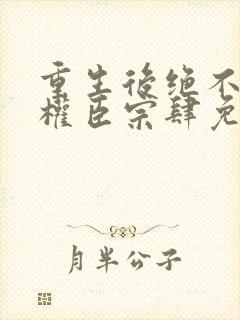 重生後绝不
權臣宗肆免
月半公子